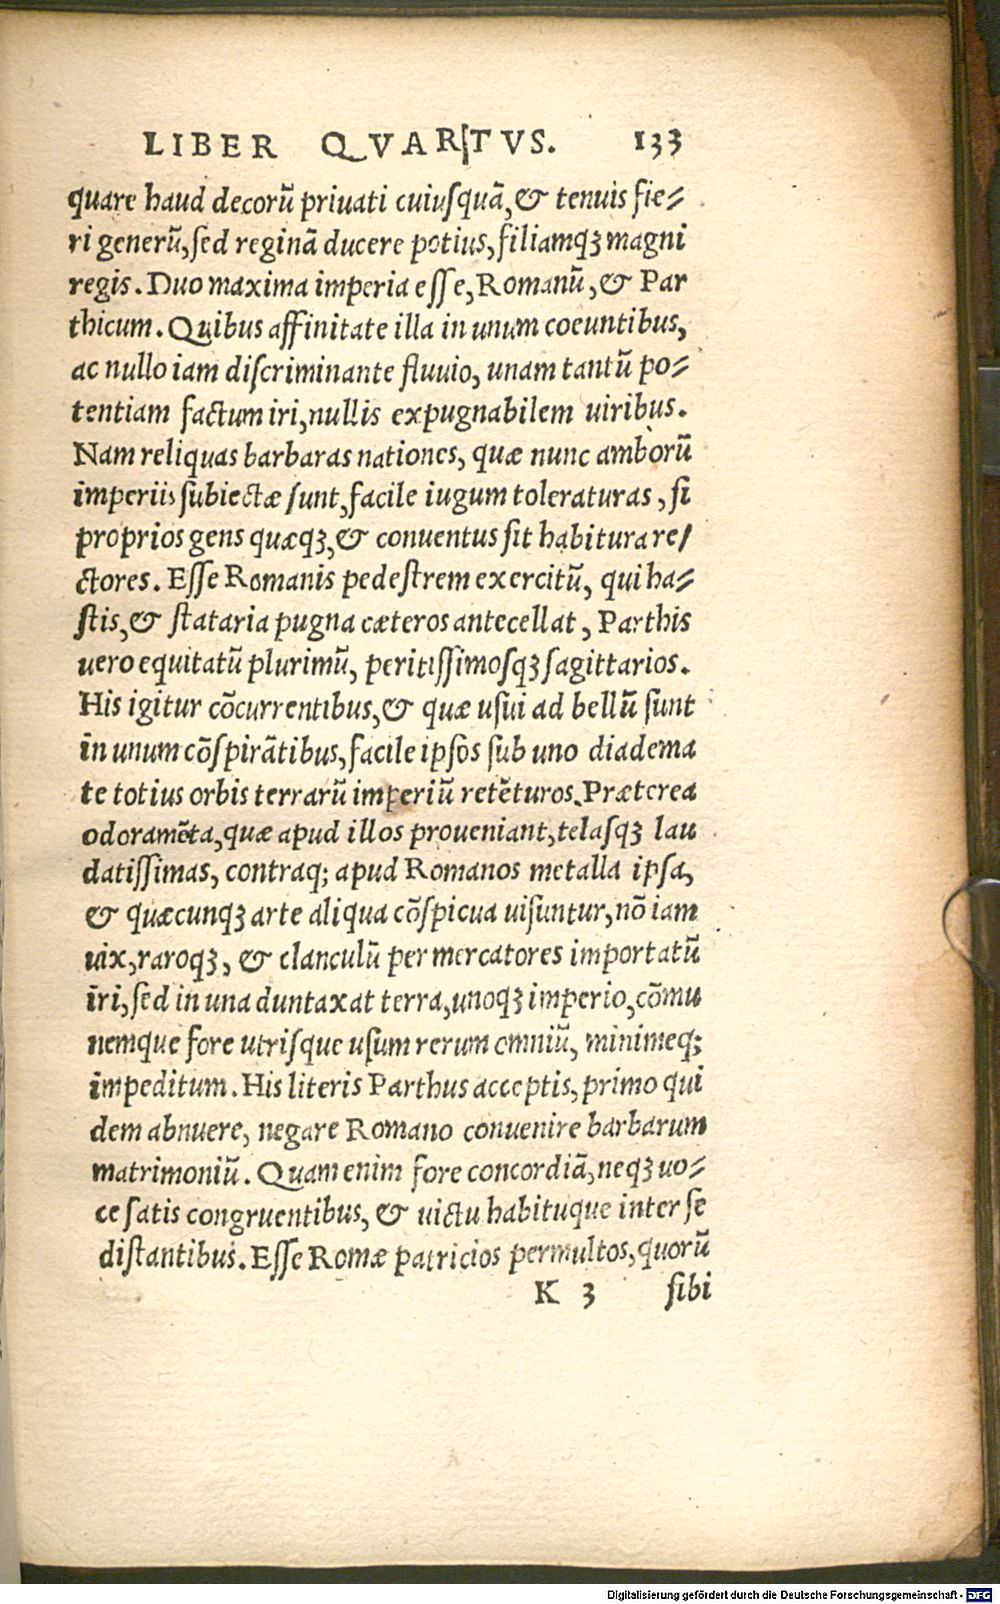 LIBER QVARTVS. 133
quare haud decorũ priuati cuiusquã, & tenuis fie⸗
ri generũ, sed reginã ducere potius, filiamqꝫ magni
regis. Duo maxima imperia esse, Romanũ, & Par
thicum. Quibus affinitate illa in unum coeuntibus,
ac nullo iam discriminante fluuio, unam tantũ po⸗
tentiam factum iri, nullis expugnabilem uiribus.
Nam reliquas barbaras nationes, quæ nunc amborũ
imperiis subiectæ sunt, facile iugum toleraturas, si
proprios gens quæqꝫ, & conuentus sit habitura re/
ctores. Esse Romanis pedestrem exercitũ, qui ha⸗
stis, & stataria pugna cæteros antecellat, Parthis
uero equitatũ plurimũ, peritissimosqꝫ sagittarios.
His igitur cõcurrentibus, & quæ usui ad bellũ sunt
in unum cõspirãtibus, facile ipsos sub uno diadema
te totius orbis terrarũ imperiũ retẽturos. Præterea
odoramẽta, quæ apud illos proueniant, telasqꝫ lau
datissimas, contraq; apud Romanos metalla ipsa,
& quæcunqꝫ arte aliqua cõspicua uisuntur, nõ iam
uix, raroqꝫ, & clanculũ per mercatores importatũ
iri, sed in una duntaxat terra, unoqꝫ imperio, cõmu
nemque fore utrisque usum rerum omniũ, minimeq;
impeditum. His literis Parthus acceptis, primo qui
dem abnuere, negare Romano conuenire barbarum
matrimoniũ. Quam enim fore concordiã, neqꝫ uo⸗
ce satis congruentibus, & uictu habituque inter se
distantibus. Esse Romæ patricios permultos, quorũ
K 3 sibi
Digitalisierung gefördert durch die Deutsche Forschungsgemeinschaft - DFG